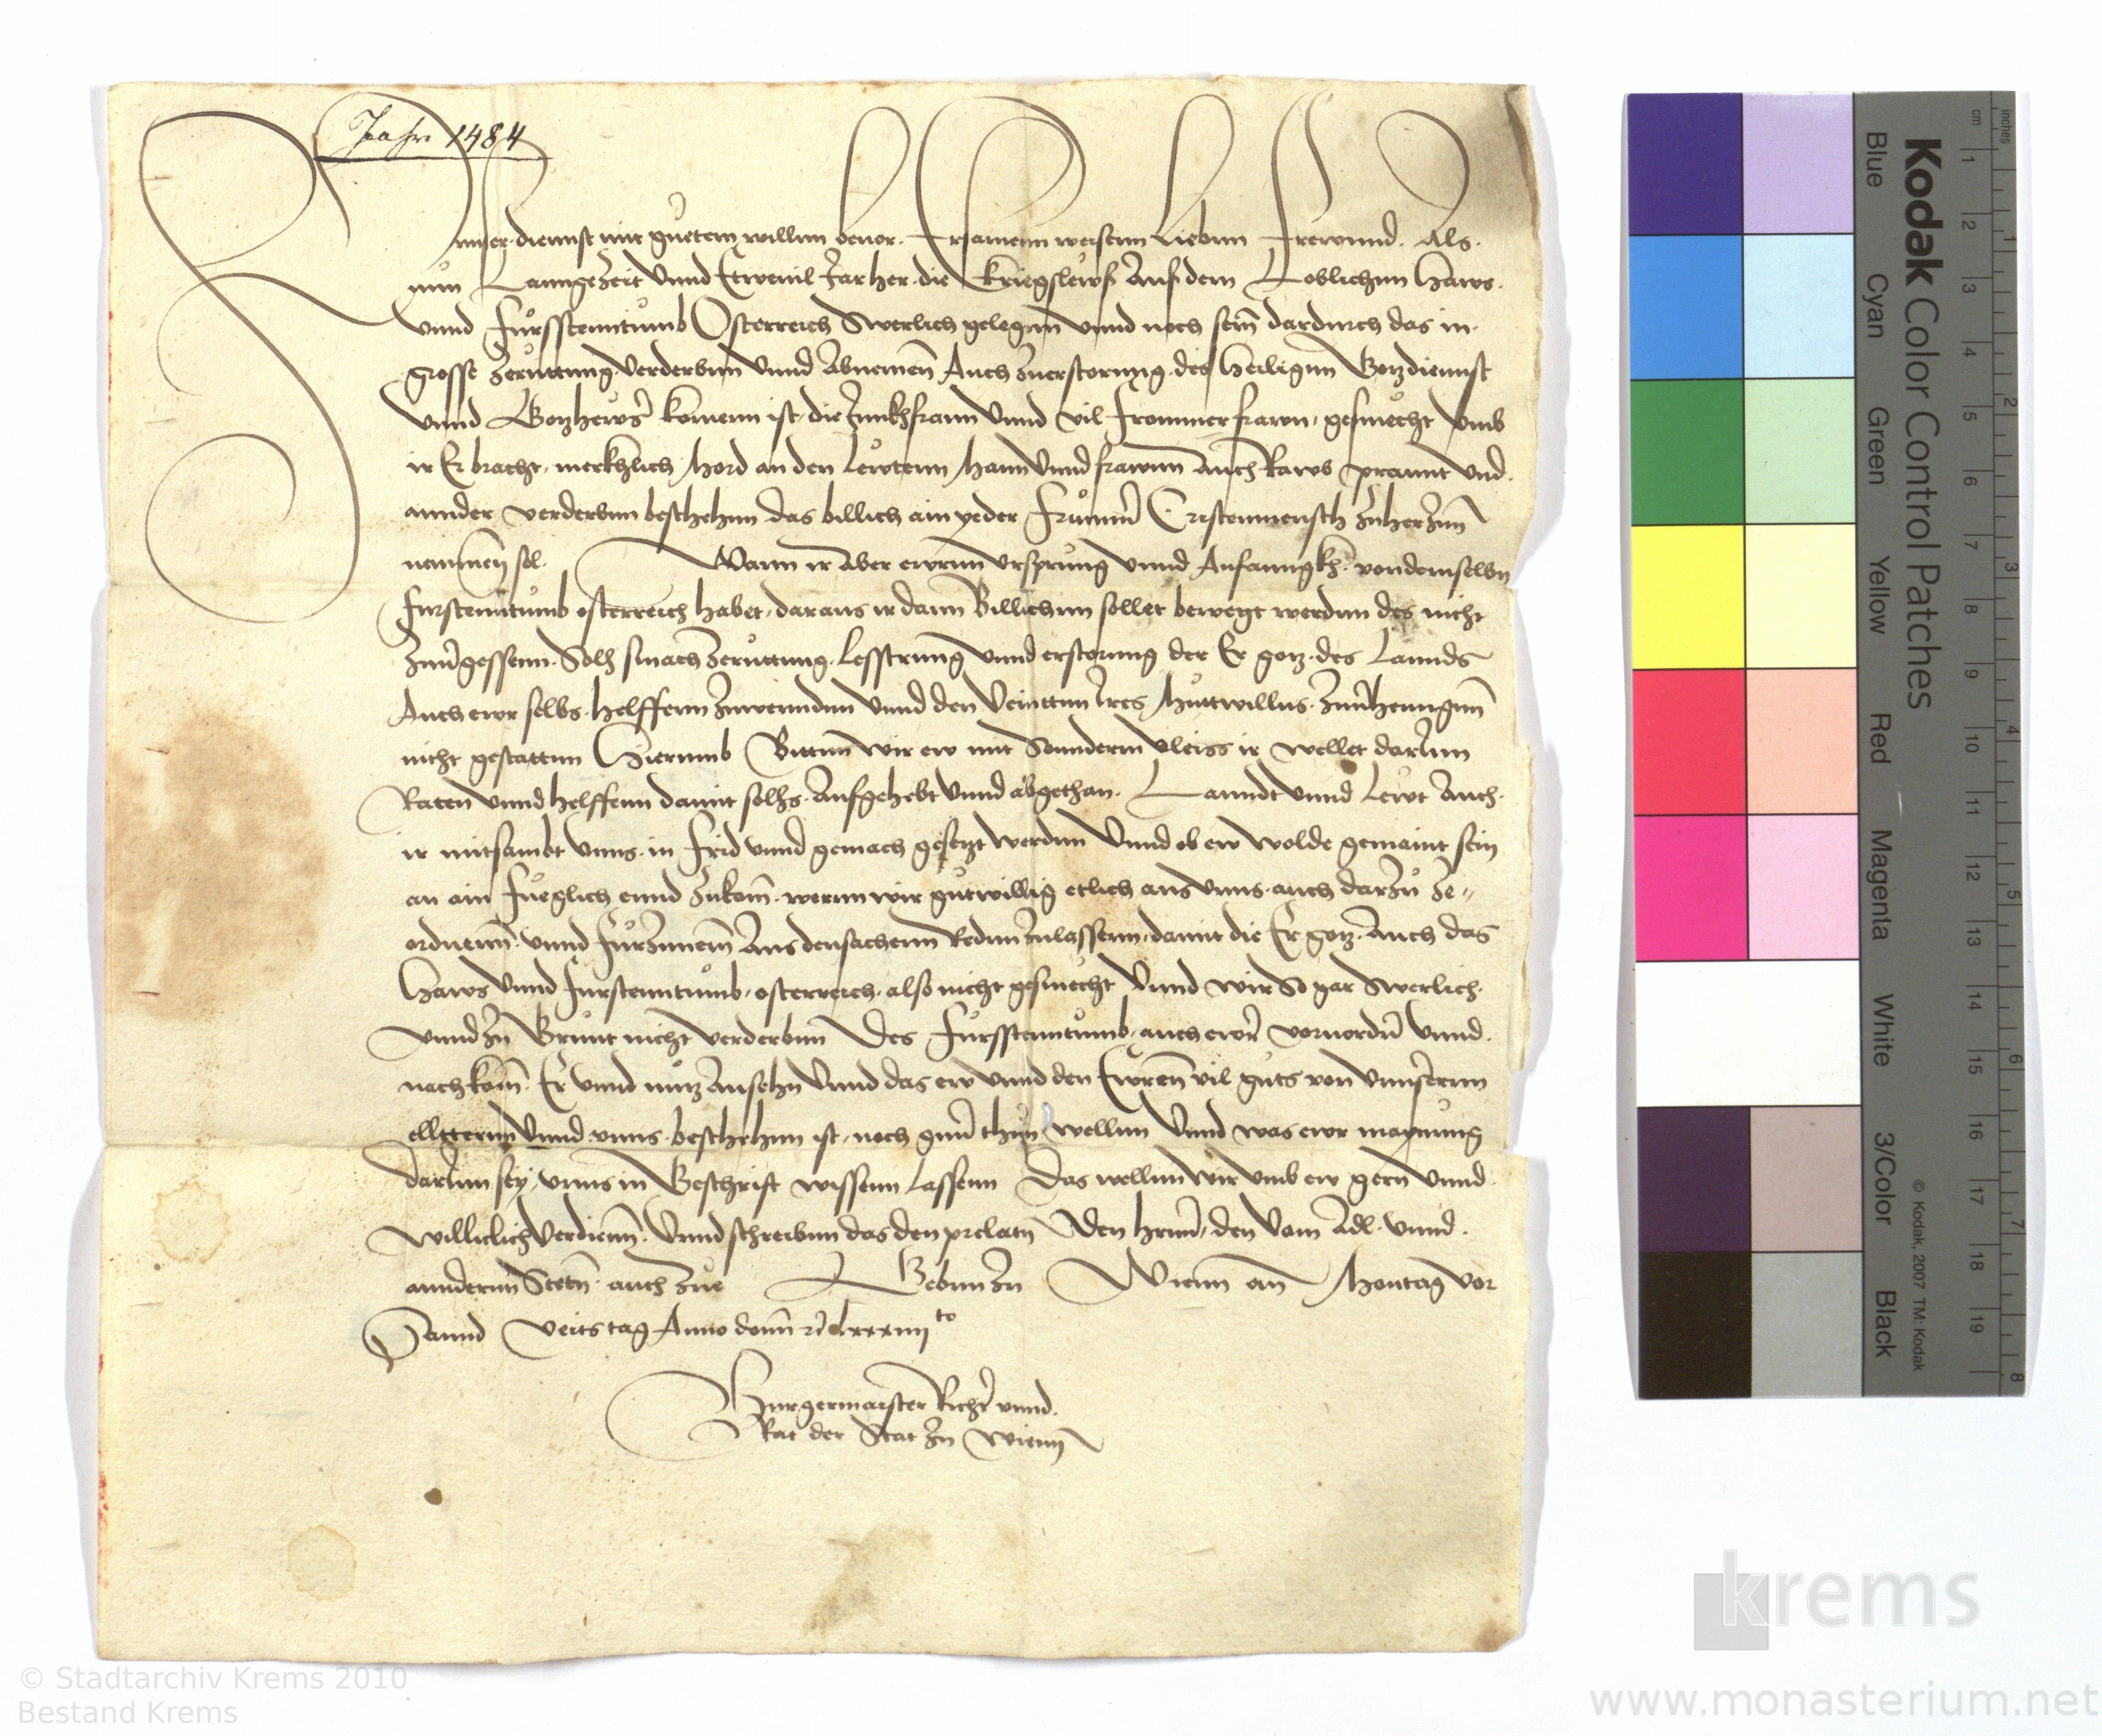 Jahr 1484
Unnser diennst mit guetem willnn beuor. Ersamenn weisenn Liebnn Frewnnd. Als.
nun Lanngeʒeit vnnd Etwevil Jar her. die kriegslewf Auf dem Loblichnn Haws.
vnnd Fürsstenntumb Österreich Swerlich gelegnn vnnd noch sein dardurch das in.
grosse ʒeruttung verderbnn vnnd Abnemen Auch ʒuerstorung. des Heilignn Gotzdiennst
vnnd Gotzhewsr komenn ist. die Junkhfrawn vnnd vil frommer frawn, gesmecht vmb
ir Er bracht, merkhlich Mord an den lewtenn Mann vnnd frawnn auch Rawb prannt vnd.
annder verderbnn beschehnn das billich ain yeder Frumr Cristenmensch ʒuherʒnn
nemmen sol. Wann ir Aber ewrnn vrsprung vnnd Anfanngkh. von demselbn
Fürstenntumb osterreich habet, daraus ir dann Billichnn sollet bewegt werdnn des nicht
ʒuuergessenn. Solh smach ʒeruttung. lesstrung vnnd erstorung der Er gotz. des Lannds
Auch ewr selbs. helffenn ʒuwenndnn vnnd den veinttnn Ires Muttwillns. ʒuuerhenngnn
nicht gestattnn Hierumb Bittnn wir ew mit Sonnderm vleiss ir wellet darInn
Raten vnnd helffenn damit solhs. Aufgehebt vnnd abgethan. Lanndt vnnd Lewt Auch.
ir mitsambt vnns. in frid vnnd gemach gesetzt werdnn Vnnd ob ew wolde gemaint sein
an ain fueglich ennd ʒukom. wernn wir gutwillig etlich aus vnns. auch darʒu ʒe-
ordnenn. vnnd furʒunemen Aus den sachenn Rednn ʒulassenn, damit die Er gotz. Auch das
Haws vnnd fürstenntumb. osterreich. also nicht gesmecht Vnnd wir So gar Swerlich.
vnnd ʒu Grunt nicht verderbnn Des Fürsstenntumb, auch ewr voruordrn vnnd.
nachkom. Er vnnd nutz Ansehn Vnnd das ew vnnd den Ewren vil guts von vnnsernn
elltternn Vnnd vnns. beschehnn ist, noch gern thun wellnn Vnnd was ewr maynung
darInn sey, vnns in Geschrift wissenn lassenn Das wellnn wir vmb ew gern vnnd.
williclich verdienn. Vnnd schreibnn das den prelatn Den herrn, den vom Adl. vnnd.
anndernn Stetn. auch ʒue Gebnn ʒu Wienn am Montag vor
Sannd Veits tag Anno domini lxxxiiij to
Burgermaister Richtr vnnd.
Rat der Stat ʒu Wienn
Kodak Color Control Patches
Blue Cyan Green Yellow Red Magenta White 3/Color Black
© Kodak, 2007 TM: Kodak
inches 1 2 3 4 5 6 7 8
cm 1 2 3 4 5 6 7 8 9 10 11 12 13 14 15 16 17 18 19
krems
© Stadtarchiv Krems 2010
Bestand Krems
www.monasterium.net